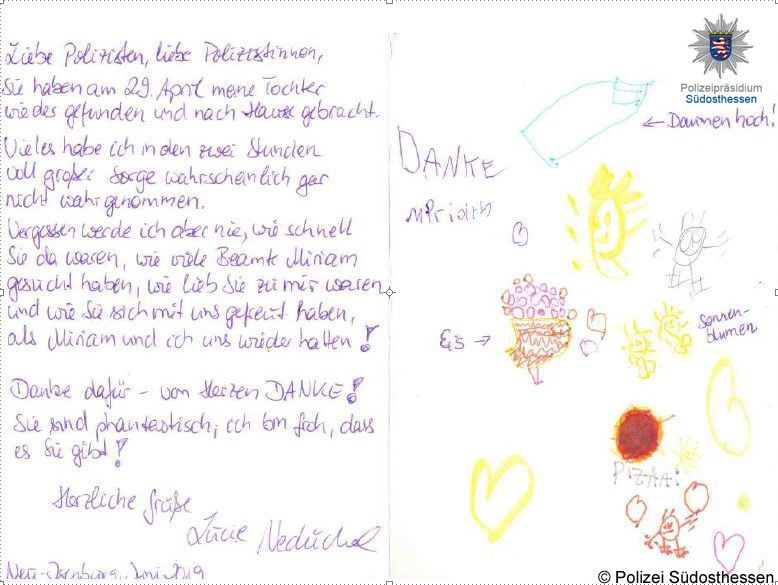 Liebe Polizisten, liebe Polizistinnen,
Sie haben am 29. April meine Tochter
wieder gefunden und nach Hause gebracht.
Vieles habe ich in den zwei Stunden
voll großer Sorge wahrscheinlich gar
nicht wahrgenommen.
Vergessen werde ich aber nie, wie schnell
Sie da waren, wie viele Beamte Miriam
gesucht haben, wie lieb Sie zu mir waren
und wie Sie sich mit uns gefreut haben,
als Miriam und ich uns wieder hatten!
Danke dafür - von Herzen DANKE!
Sie sind phantastisch, ich bin froh, dass
es Sie gibt!
Herzliche Grüße
Lucie
Neu-Isenburg, Juni 2019
Polizeipräsidium
Südosthessen
← Daumen hoch!
DANKE
Eis →
Sonnen-
blumen
PIZAA!
© Polizei Südosthessen